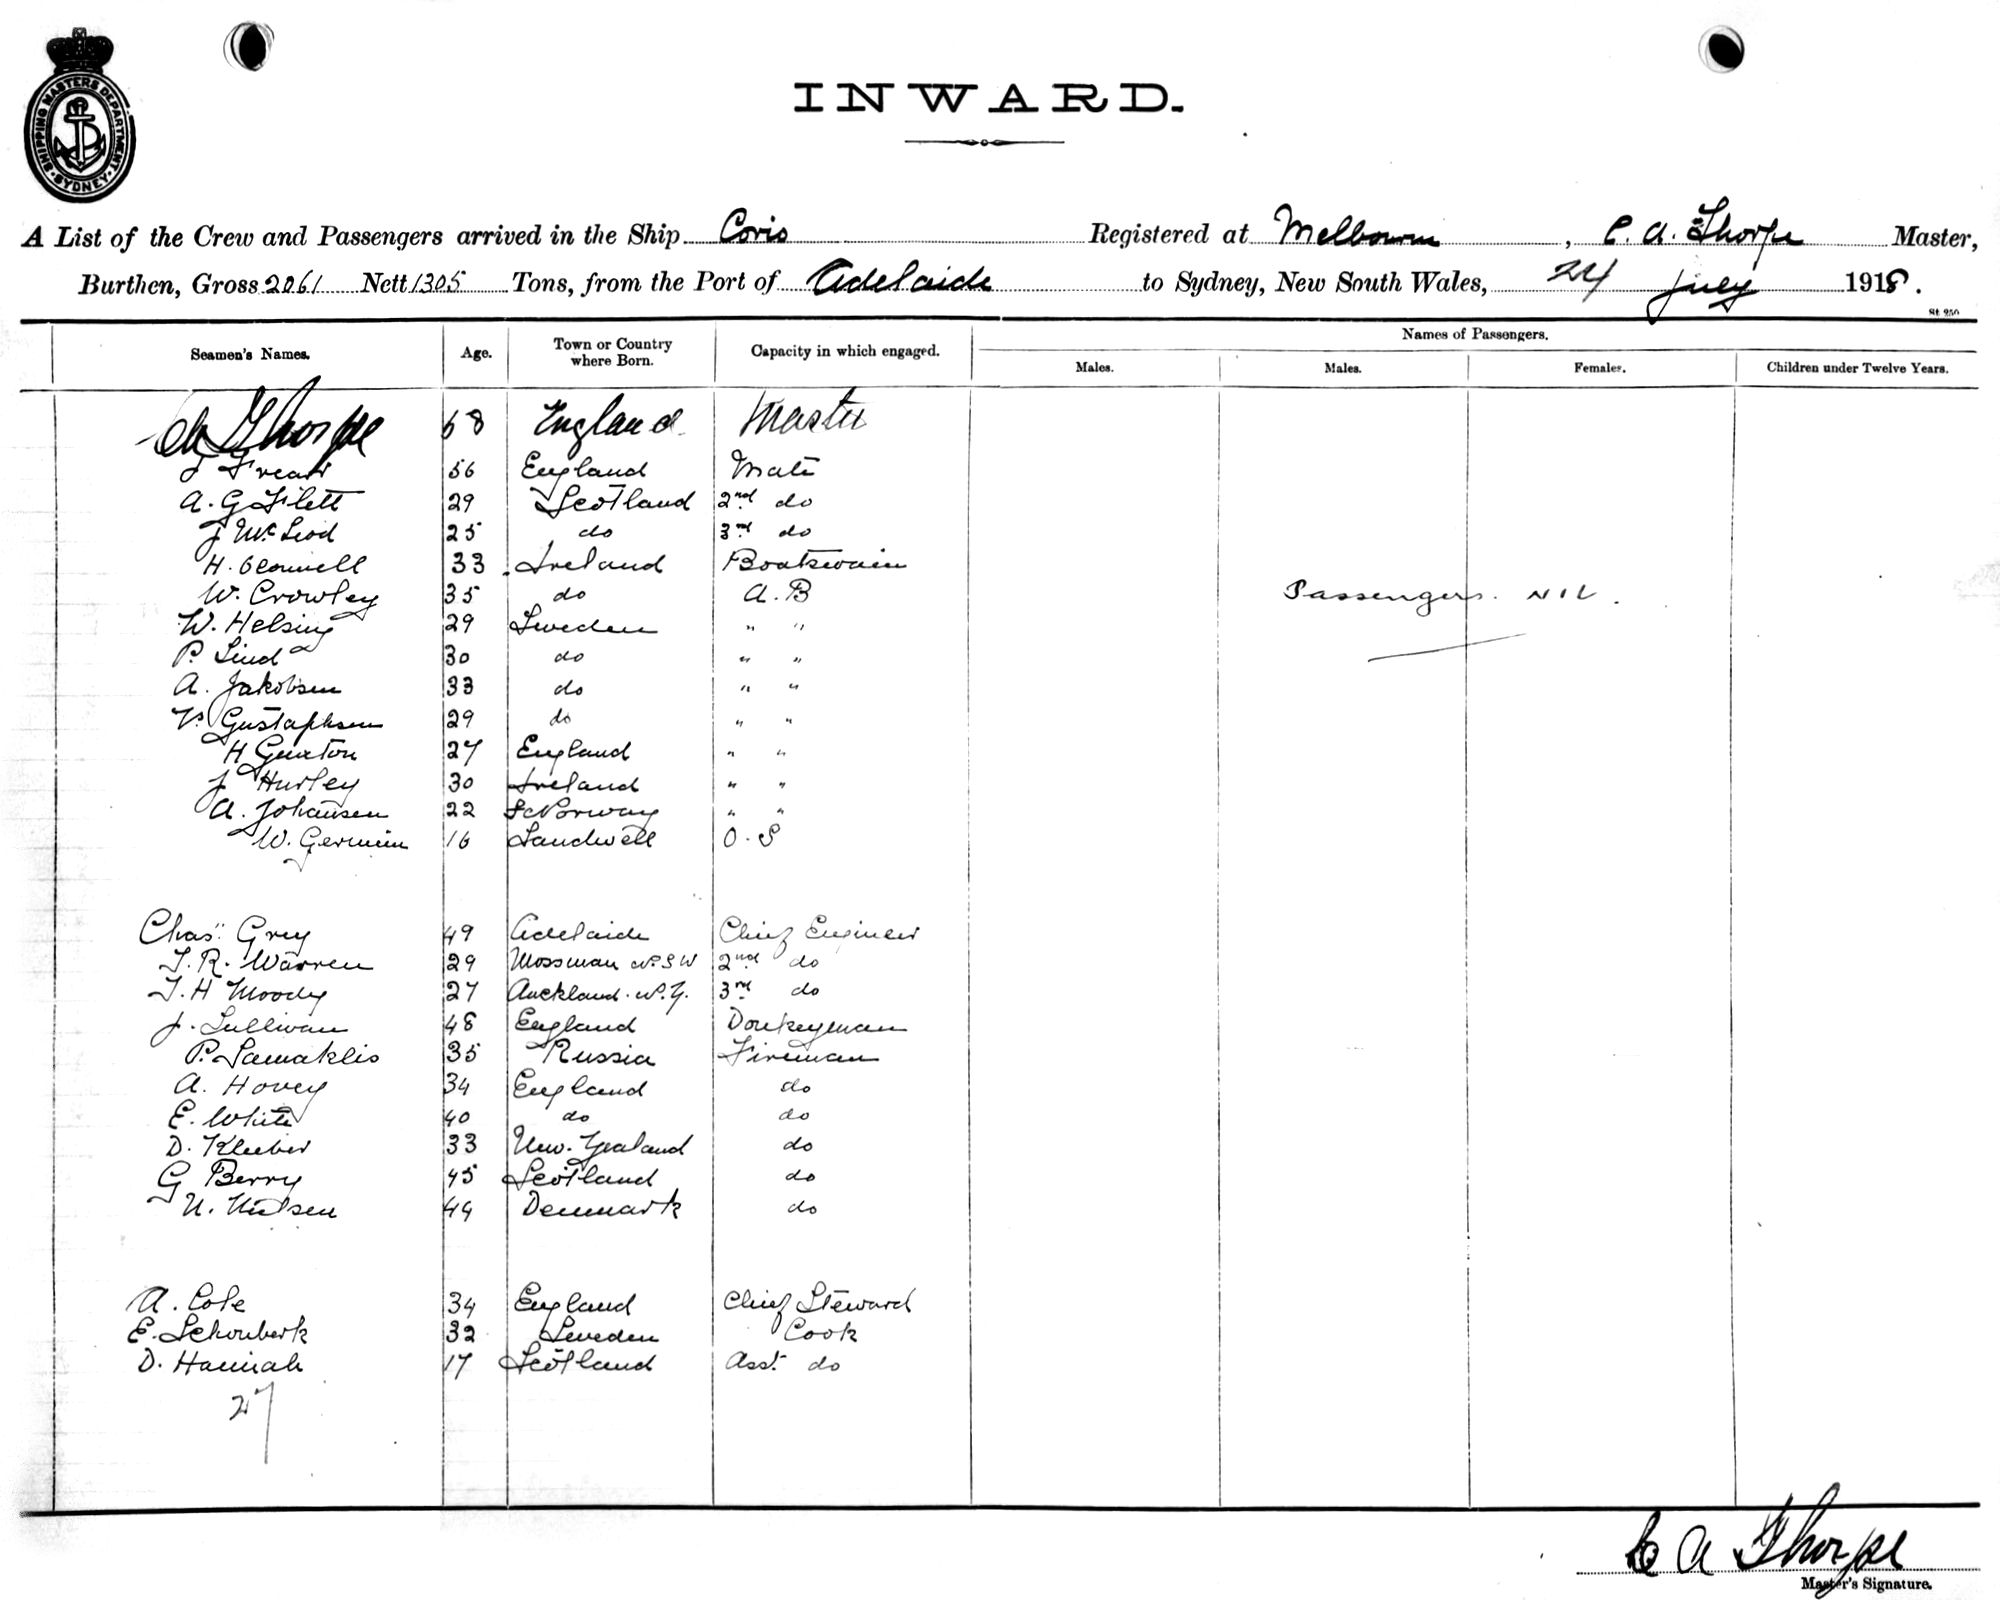 SHIPPING MASTERS DEPARTMENT SYDNEY
INWARD.
A List of the Crew and Passengers arrived in the Ship Corio Registered at Melbourne, C. A. Thorpe Master,
Burthen, Gross 2061 Nett 1305 Tons, from the Port of Adelaide to Sydney, New South Wales, 24 July 1918.
St. 250
Seamen's Names. Age. Town or Country where Born. Capacity in which engaged. Names of Passengers.
Males. Males. Females. Children under Twelve Years.
CA Thorpe 68 England Master
J 56 England Mate
A. G. 29 Scotland 2nd do
J McLeod 25 do 3rd do
H. OConnell 33 Ireland Boatswain
W. Crowley 35 do A. B Passengers. NIL.
W. Helsing 29 Sweden " "
P. Lind 30 do " "
A. Jakobsen 33 do " "
Gustaphsen 29 do " "
H 27 England " "
J Hurley 30 Ireland " "
A. Johansen 22 Norway " "
W. Germein 16 O. S
Chas: Grey 49 Adelaide Chief Engineer
J. R. Warren 29 Mossman N.S W 2nd do
J. H Moody 27 Auckland. N.Z. 3rd do
J. Sullivan 48 England Donkeyman
P. Samaklis 35 Russia Fireman
A. Hovey 34 England do
E. White 40 do do
D. Kleeber 33 New. Zealand do
G Berry 45 Scotland do
N. 49 Denmark do
A. Cole 34 England Chief Steward
E. 32 Sweden Cook
D. Hannah 17 Scotland Asst. do
27
C A Thorpe
Master's Signature.